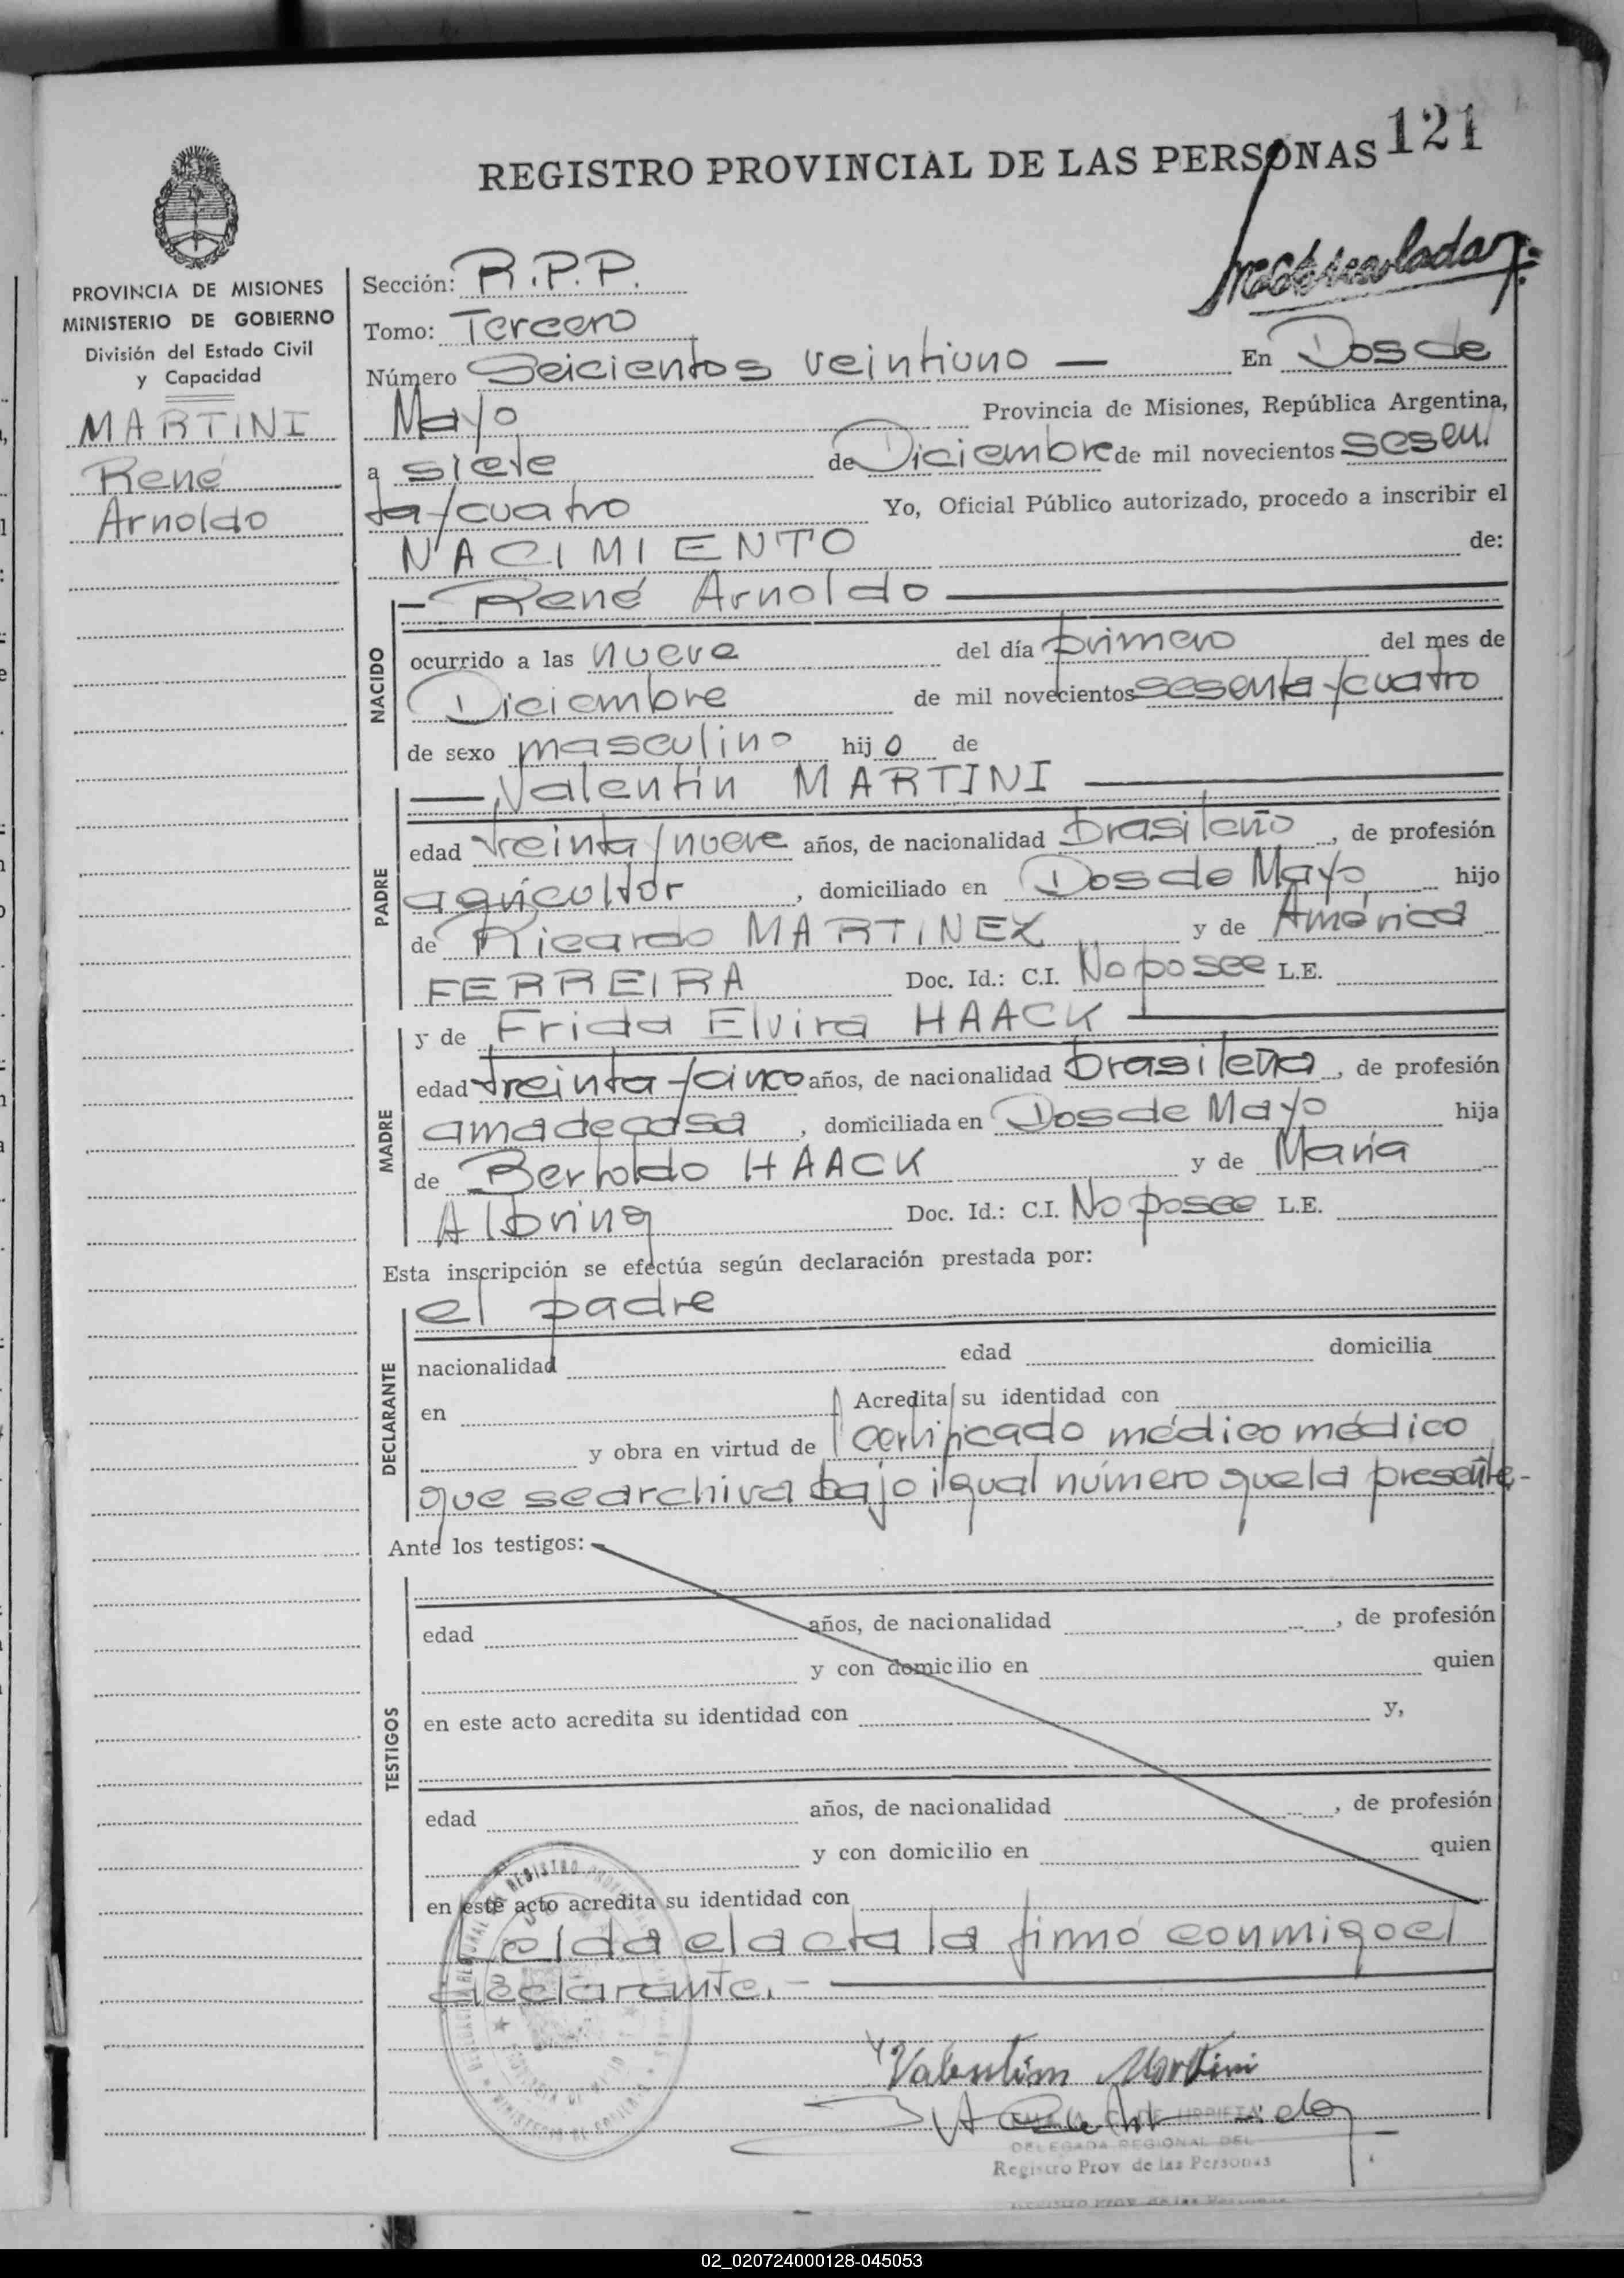 121
REGISTRO PROVINCIAL DE LAS PERSONAS
PROVINCIA DE MISIONES
MINISTERIO DE GOBIERNO
División del Estado Civil
y Capacidad
MARTINI
René
Arnoldo
Sección: R.P.P.
Tomo: Tercero
Número Seicientos veintiuno — En Dos de
Mayo Provincia de Misiones, República Argentina,
a siete de Diciembre de mil novecientos sesen
ta y cuatro Yo, Oficial Público autorizado, procedo a inscribir el
NACIMIENTO de:
NACIDO
— René Arnoldo —
ocurrido a las nueve del día primero del mes de
Diciembre de mil novecientos sesenta y cuatro
de sexo masculino hijo de
PADRE
— Valentín MARTINI —
edad treinta y nueve años, de nacionalidad brasileño, de profesión
agricultor, domiciliado en Dos de Mayo hijo
de Ricardo MARTINEZ y de América
FERREIRA Doc. Id.: C.I. No posee L.E.
MADRE
y de Frida Elvira HAACK —
edad treinta y cinco años, de nacionalidad brasileña, de profesión
ama de casa, domiciliada en Dos de Mayo hija
de Bertoldo HAACK y de María
Albring Doc. Id.: C.I. No posee L.E.
Esta inscripción se efectúa según declaración prestada por:
DECLARANTE
el padre
nacionalidad edad domicilia
en Acredita su identidad con
y obra en virtud de certificado médico médico
que se archiva bajo igual número que la presente.-
Ante los testigos:
TESTIGOS
edad años, de nacionalidad , de profesión
y con domicilio en quien
en este acto acredita su identidad con y,
edad años, de nacionalidad , de profesión
y con domicilio en quien
en este acto acredita su identidad con
Leída el acta la firmó conmigo el
declarante.- —
Valentim Martini
DELEGADA REGIONAL DEL
Registro Prov de las Personas
Registro Prov de las Personas
02_020724000128-045053